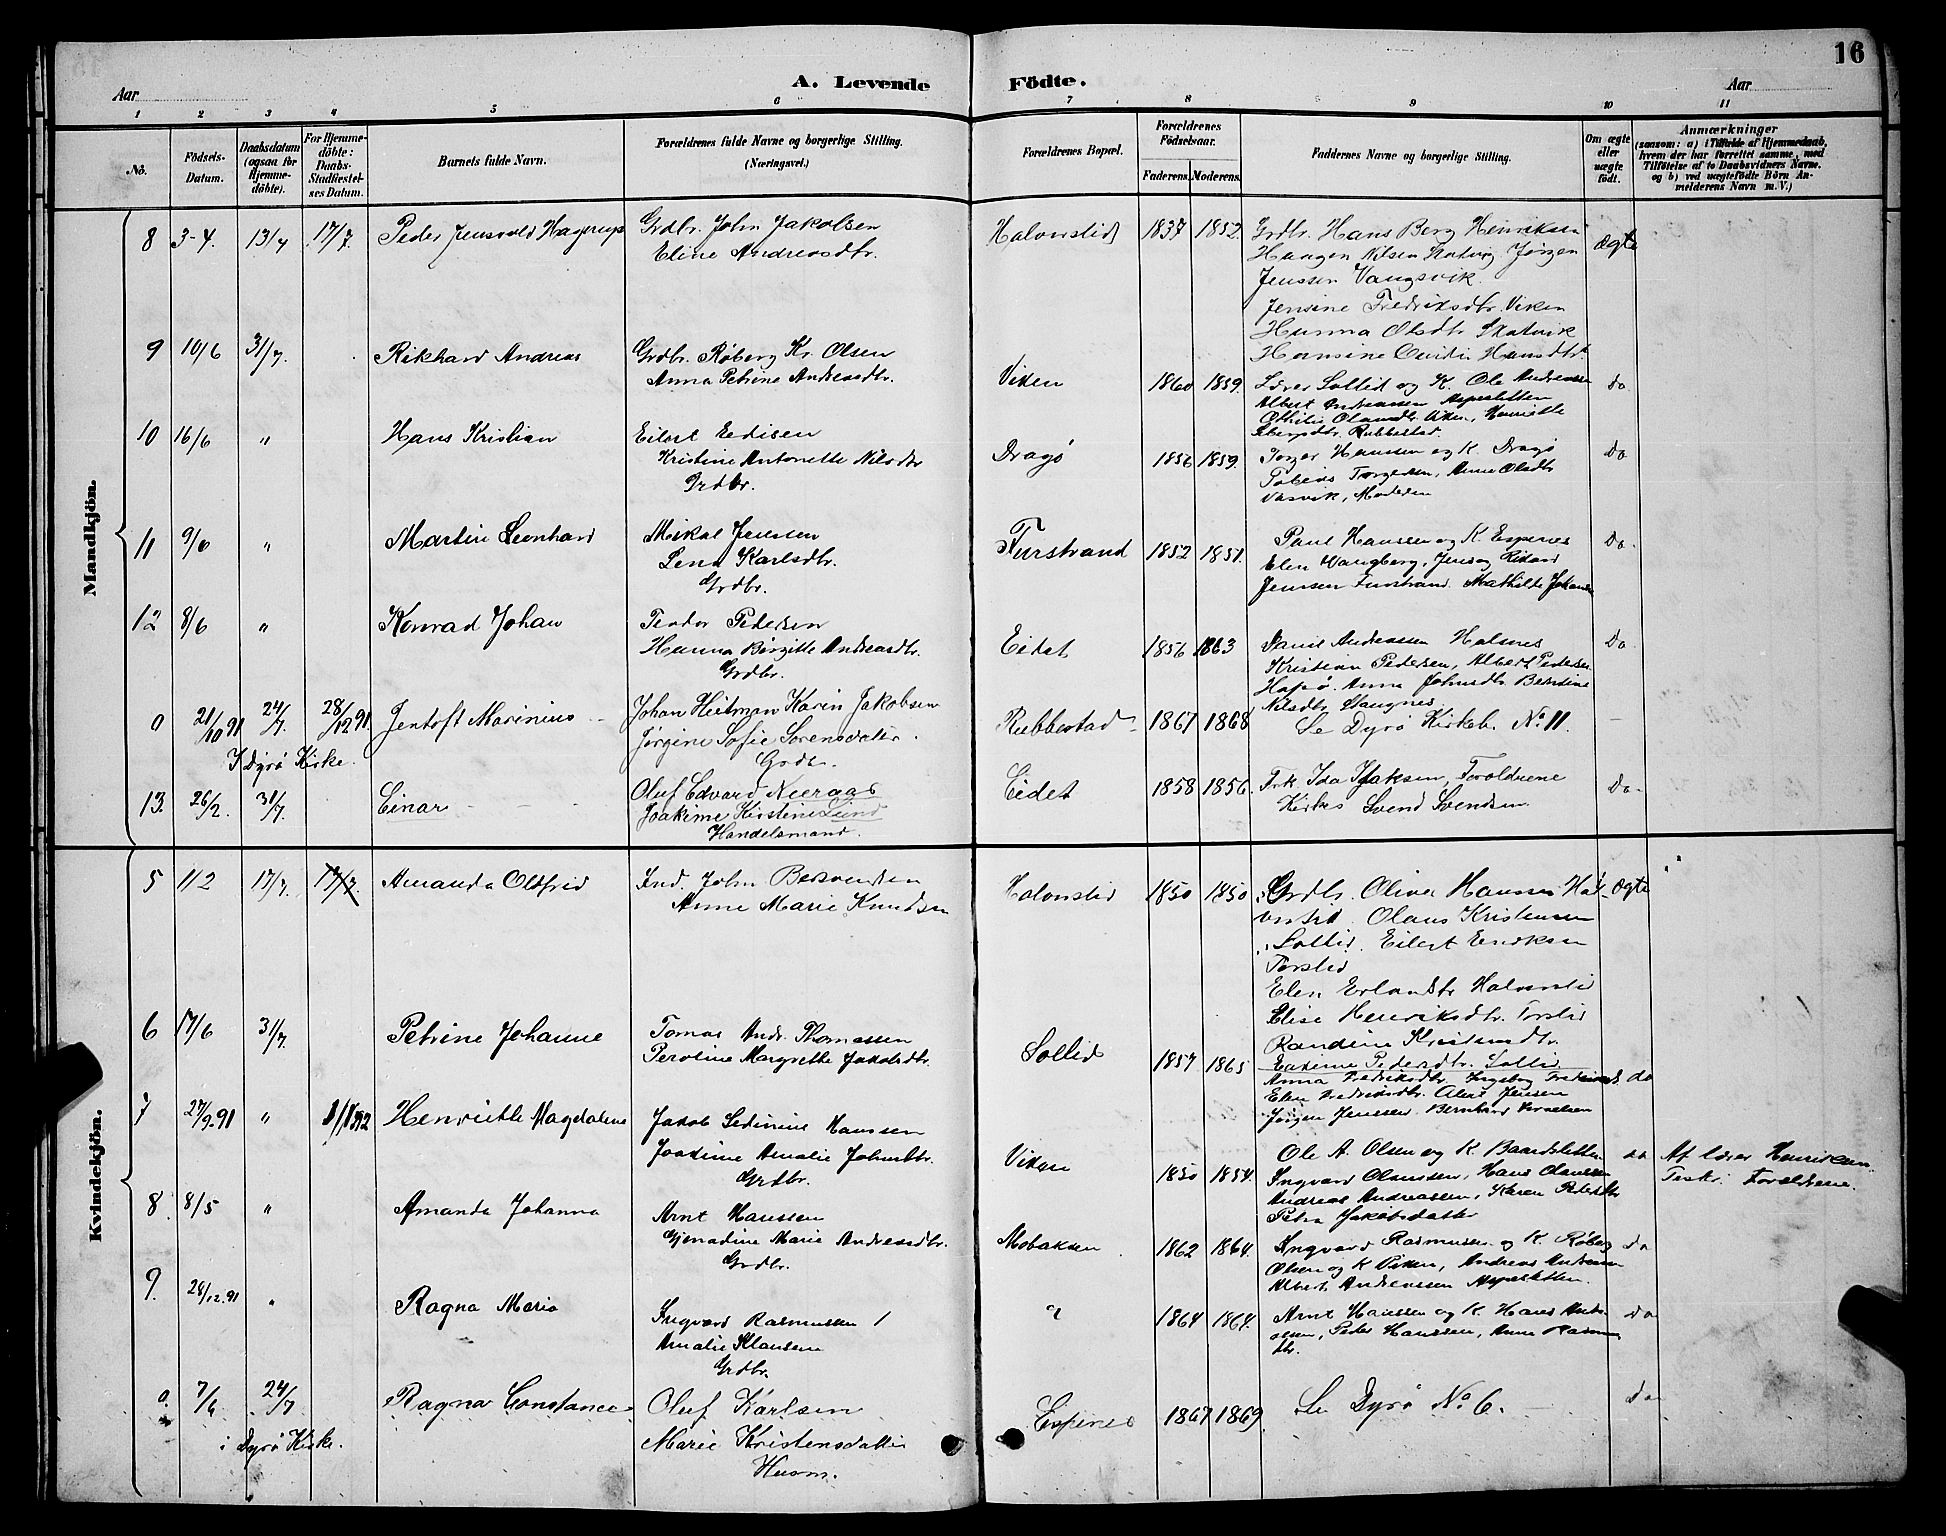 16
A. Levende Födte.
Aar
Aar
1 2 3 4 5 6 7 8 9 10 11
No.
Födsels-Datum.
Daabsdatum (ogsaa for Hjemme-döbte).
For Hjemme-döbte: Daabs-Stadfæstel-ses Datum.
Barnets fulde Navn.
Forældrenes fulde Navne og borgerlige Stilling. (Næringsvei.)
Forældrenes Bopæl.
Forældrenes Födselsaar.
Faderens. Moderens.
Faddernes Navne og borgerlige Stilling.
Om ægte eller uægte födt.
Anmærkninger
(saasom: a) i Tilfælde af Hjemmedaab, hvem der har forrettet samme, med Tilföielse af to Daabsvidners Navne. og b) ved uægtefödte Börn An-melderens Navn m. V.)
Mandkjön.
8 3-4. 13/7 17/7. Peder Jensvold Hagerup Grdbr. John Jakobsen
Eline Andreasdtr.
Halvorslid 1837 1852. Grdbr. Hans Berg Henriksen
Haagen Nilsen Skatvig. Jørgen
Jenssen Vangsvik.
Jensine Fredriksdtr. Viken
Hanna Olsdtr. Skatvik
Hansine Hansdtr.
ægte
9 10/6 31/7. Rikhard Andreas Grdbr. Røberg Kr. Olsen
Anna Petrine Andreasdtr.
Viken 1860 1859. Lærer Sollid og K. Ole Andreassen
Albert Andreassen Aspesletten
Viken, Henriette
Rubbestad.
do
10 16/6 " Hans Kristian Eilert Edisen
Kristine Antonette Nilsdtr
Grdbr.
Dragø 1856 1859. Hanssen og K. Dragø
Tobias Torgersen, Anne Olsdtr
Vasvik, Moderen
Do
11 9/6 " Martin Leonhard Mikal Jenssen
Lena Karlsdtr.
Grdbr.
Furstrand 1852 1851. Paul Hanssen og K. Espenes
Elen Vangberg, Jens og Rikard
Jenssen Furstrand. Mathilde Johansen
Do.
12 8/6 " Konrad Johan Teodor Pedersen
Hanna Birgitte Andreasdtr.
Grdbr.
Eidet 1856 1863 Daniel Andreassen Holsnes
Kristian Pedersen, Albert Pedersen
Anna Johnsdtr. Berntine
Nilsdtr. Stangnes.
Do
0 21/10 91 24/7. 28/12 91. Jentoft Marinius Johan Heitman Karin Jakobsen
Jørgine Sofie Sørensdatter.
Grdbr.
I Dyrø Kirke.
Rubbestad 1867 1868 Se Dyrø Kirkeb. No 11. -
13. 26/2. 31/7. Einar Oluf Edvard Nieraas
Joakime Kirstine Lund
Handelsmand.
Eidet 1858 1856. Frk. Ida Isaksen, Forældrene
Kirkes. Svend Svendsen.
Do-
Kvindekjön.
5 11 2 17/7. 17/7. Amanda Oldfrid Ind. John Bersvendsen
Anne Marie Knudsen
Halvorslid 1850 1850 Grdbr. Oliver Hanssen Hal-
vorslid. Olaus Kristensen
Sollid. Eilert Eriksen
Torslid
Elen Erlandsdtr Halvorslid
Elise Henriksdtr. Torslid
Randine Kristensdtr.
Pedersdtr. Sollid
ægte
6 17/6 31/7. Petrine Johanne Tomas Andr. Thomassen
Peroline Margrethe Jakobsdtr.
Sollid 1857 1865 Anna Fredriksdtr. Ingeborg Fredriksdtr.
Elen Fredriksdtr. Albert Jensen
Jørgen Jenssen. Bernhard Kornelsen
do
7 27/9-91 " 1/1 1892 Henriette Magdalene Jakob Sedinius Hanssen
Joakime Amalie Johnsdtr.
Grdbr.
Viken 1850 1854. Ole A. Olsen og K. Baardsletten
Ingvard Olaussen, Hans Olaussen
Andreas Andreassen, Karen Pedersdtr
Petra Jakobsdatter
do Af lærer Henriksen.
Testr. Forældrene.
8. 8/5 " Amanda Johanna Arnt Hanssen
Gjenadine Marie Andreasdtr.
Grdbr.
Mobakken 1862 1864. Ingvard Rasmussen og K. Røberg
Olsen og K. Viken, Andreas Andreassen
Albert Andreassen Aspesletten.
do
9. 28/12.91 " Ragna Maria Ingvard Rasmussen
Amalie Klausen
Grdbr.
" 1864 1864. Arnt Hanssen og K. Hans
Peder Hanssen, Anne Rasmus-
dtr.
do
0. 7/6 24/7 Ragna Constance Oluf Karlsen
Marie Kristensdatter
Husm.
i Dyrø Kirke.
Espenes 1867 1869. Se Dyrø No 6. Do